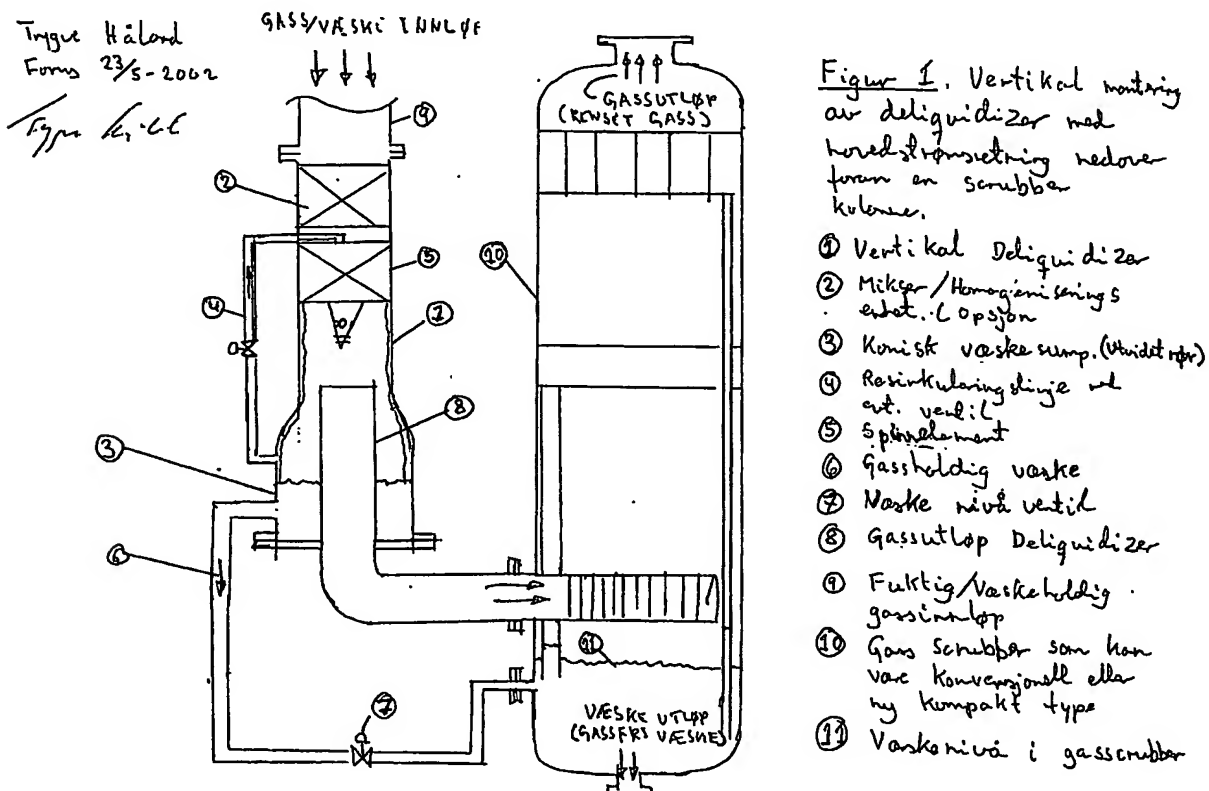 Trygve Håland
Forus 23/5-2002
GASS/VÆSKE INNLØP
GASSUTLØP
(RENSET GASS)
9
2
5
4
1
8
3
6
7
10
11
VÆSKE UTLØP
(GASSFRI VÆSKE)
Figur 1. Vertikal montering
av deliquidizer med
hovedstrømsretning nedover
foran en scrubber
kolonne.
① Vertikal Deliquidizer
② Mikser/Homogeniserings
enhet. opsjon
③ Konisk væskesump. (Utvidet rør)
④ Resirkuleringslinje
evt. ventil
⑤ Spinnelement
⑥ Gassholdig væske
⑦ Væske nivå ventil
⑧ Gassutløp Deliquidizer
⑨ Fuktig/Væskeholdig
gassinnløp
⑩ Gass Scrubber som kan
være konvensjonell eller
ny kompakt type
⑪ Væskenivå i gasscrubber